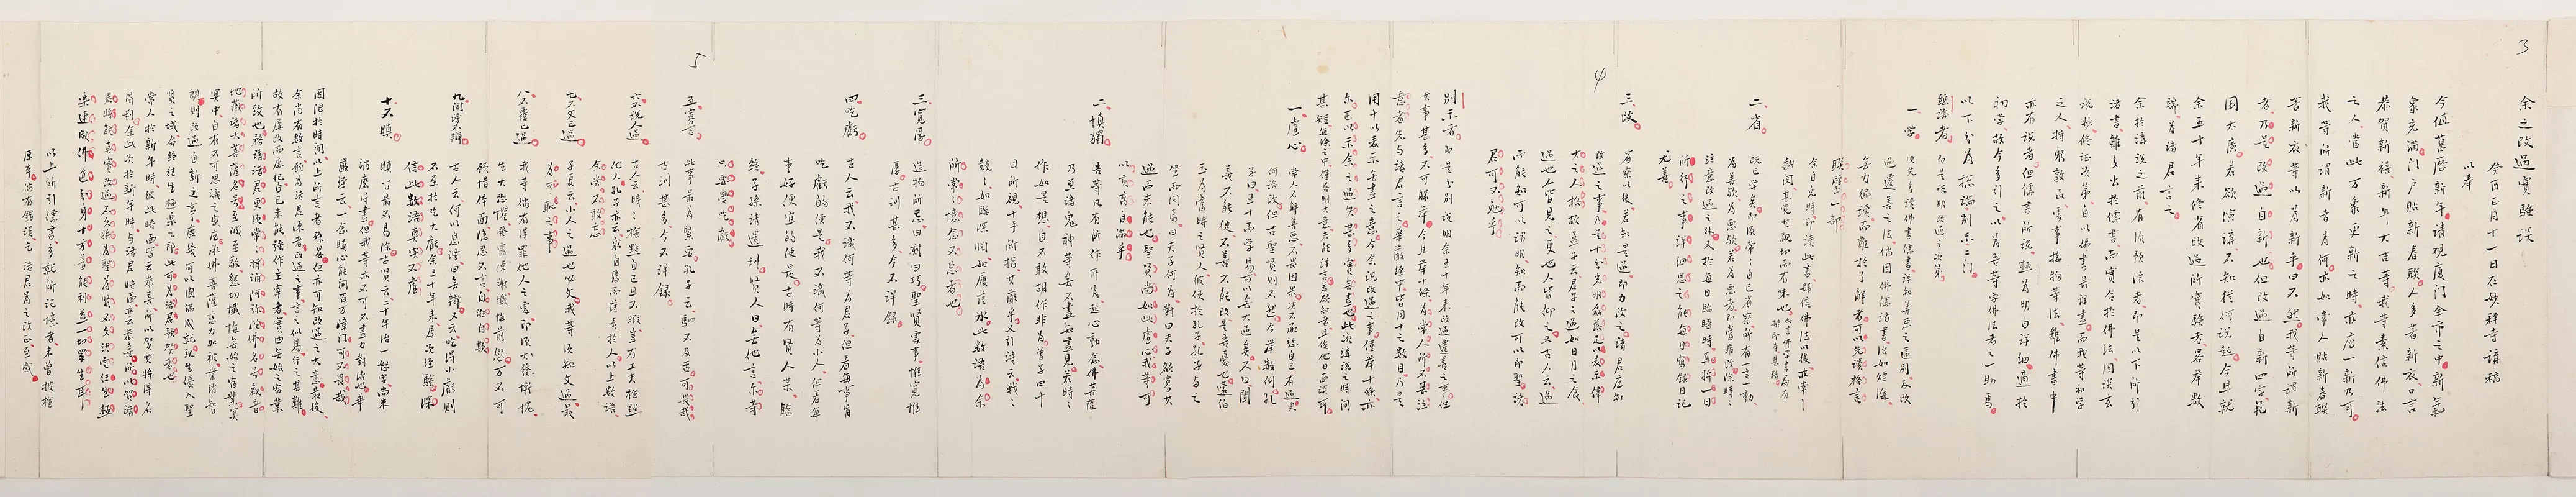 3
余之改過實驗談
癸酉正月十一日在妙釋寺講稿
以奉
今值舊曆新年請觀廈門全市之中新氣
象充滿門戶貼新春聯人多著新衣口言
恭賀新禧新年大吉等我等素信佛法
之人當此万象更新之時亦應一新乃可
我等所謂新者為何亦如常人貼新春聯
著新衣等以為新乎曰不然我等所謂新
者乃是改過自新也但改過自新四字範
圍太廣若欲演講不知從何說起今且就
余五十年來修省改過所實驗者略舉數
端為諸君言之
余於講說之前有須預陳者即是以下所引
諸書雖多出於儒書而實合於佛法因談玄
說妙修証次第自以佛書最詳盡而我等初學
之人持躬敦品處事接物等法雖佛書中
亦有說者但儒書所說為明白詳細適於
初學故今多引之以為吾等學佛法者之一助焉
以下分為總論別示二門
總論者即是說明改過之次第
一學
須先多讀佛書儒書詳知善惡之區別及改
過遷善之法倘因佛儒諸書浩如煙海
無力徧讀而難於了解者可以先讀格言
聯璧一部
余自兒時即讀此書歸信佛法以後亦常〻
翻閱甚覺其親切而有味也此書佛學書局有
排印本甚精
二省
既已學矣即須常〻自己省察所有一言一動
為善歟為惡歟若為惡者即當痛改除時〻
注意改過之外又於每日臨睡時再將一日
所行之事詳細思之能每日寫錄日記
尤善
4
三改
省察以後若知是過即力改之諸君應知
改過之事乃是十分光明磊落足以表示偉
大之人格故子貢云君子之過也如日月之食焉
過也人皆見之更也人皆仰之又古人云過
而能知可以謂明知而能改可以即聖諸
君可不勉乎
別示者即是分別說明余五十年來改過遷善之事但
其事甚多不可勝舉今且舉十條為常人所不甚注
意者先與諸君言之華嚴經中皆用十之數目乃是
用十以表示無盡之意今余說改過之事僅舉十條亦
爾正以示余之過失甚多實無盡也此次講說時間
甚短每條之中僅略明大意未能詳言若欲知者且俟他日面談耳
一虛心
常人不解善惡不畏因果決不承認自己有過更
何論改但古聖賢則不然今舉數例孔
子曰五十而學易可以無大過矣又曰聞
義不能徙不善不能改是吾憂也蘧伯
玉為當時之賢人彼使人於孔子孔子與之
坐而問焉曰夫子何為對曰夫子欲寡其
過而未能也聖賢尚如此虛心我等可
以貢高自滿乎
二慎獨
吾等凡有所作所為起念動心佛菩薩
乃至諸鬼神等無不盡知盡見若時〻
作如是想自不敢胡作非為曾子曰十
目所視十手所指其嚴乎又引詩云戰〻
兢〻如臨深淵如履薄冰此數語為余
所常〻憶念不忘者也
三寬厚
造物所忌曰刻曰巧聖賢處事惟寬惟
厚古訓甚多今不詳錄
四吃虧
古人云我不識何等為君子但看每事肯
吃虧的便是我不識何等為小人但看每
事好便宜的便是古時有賢人某臨
終子孫請遺訓賢人曰無他言爾等
只要學吃虧
5
五寡言
此事最為緊要孔子云駟不及舌可畏哉
古訓甚多今不詳錄
六不說人過
古人云時〻檢點自己且不暇豈有工夫檢點
他人孔子亦云躬自厚而薄責於人以上數語
余常不敢忘
七不文己過
子夏云小人之過也必文我等須知文過最
為可恥之事
八不覆己過
我等倘有得罪他人之處即須大發慚愧
生大恐懼發露陳謝懺悔前愆万不可
顧惜體面隱忍不言自誑自欺
九聞謗不辯
古人云何以息謗曰無辯又云吃得小虧則
不至於吃大虧余三十年來屢次經驗深
信此數語真實不虛
十不瞋
瞋習最不易除古賢云二十年治一怒字尚未
消磨得盡但我等亦不可不盡力對治也華
嚴經云一念瞋心能開百万障門可不畏哉
因限於時間以上所言者殊略但亦可知改過之大意最後
余尚有數言願為諸君陳者改過之事言之似易行之甚難
故有屢改而屢犯自己未能強作主宰者實由無始之宿業
所致也務請諸君更須常〻持誦阿彌陀佛名號觀音
地藏諸大菩薩名號至誠至敬懇切懺悔無始宿業冥
冥中自有不可思議之感應承佛菩薩慈力加被業消智
朗則改過自新之事庶幾可以圓滿成就現生優入聖
賢之域命終往生極樂之邦此可為諸君預賀者也
常人於新年時彼此晤面皆云恭喜所以賀其將得名
利余此次於新年時與諸君晤面亦云恭喜所以賀諸
君將能真實改過不久將為聖為賢不久決定往生極
樂速成佛道分身十方普能利益一切眾生耳
以上所引儒書多就所記憶者未曾檢校
原本倘有錯誤乞諸君為之改正至感